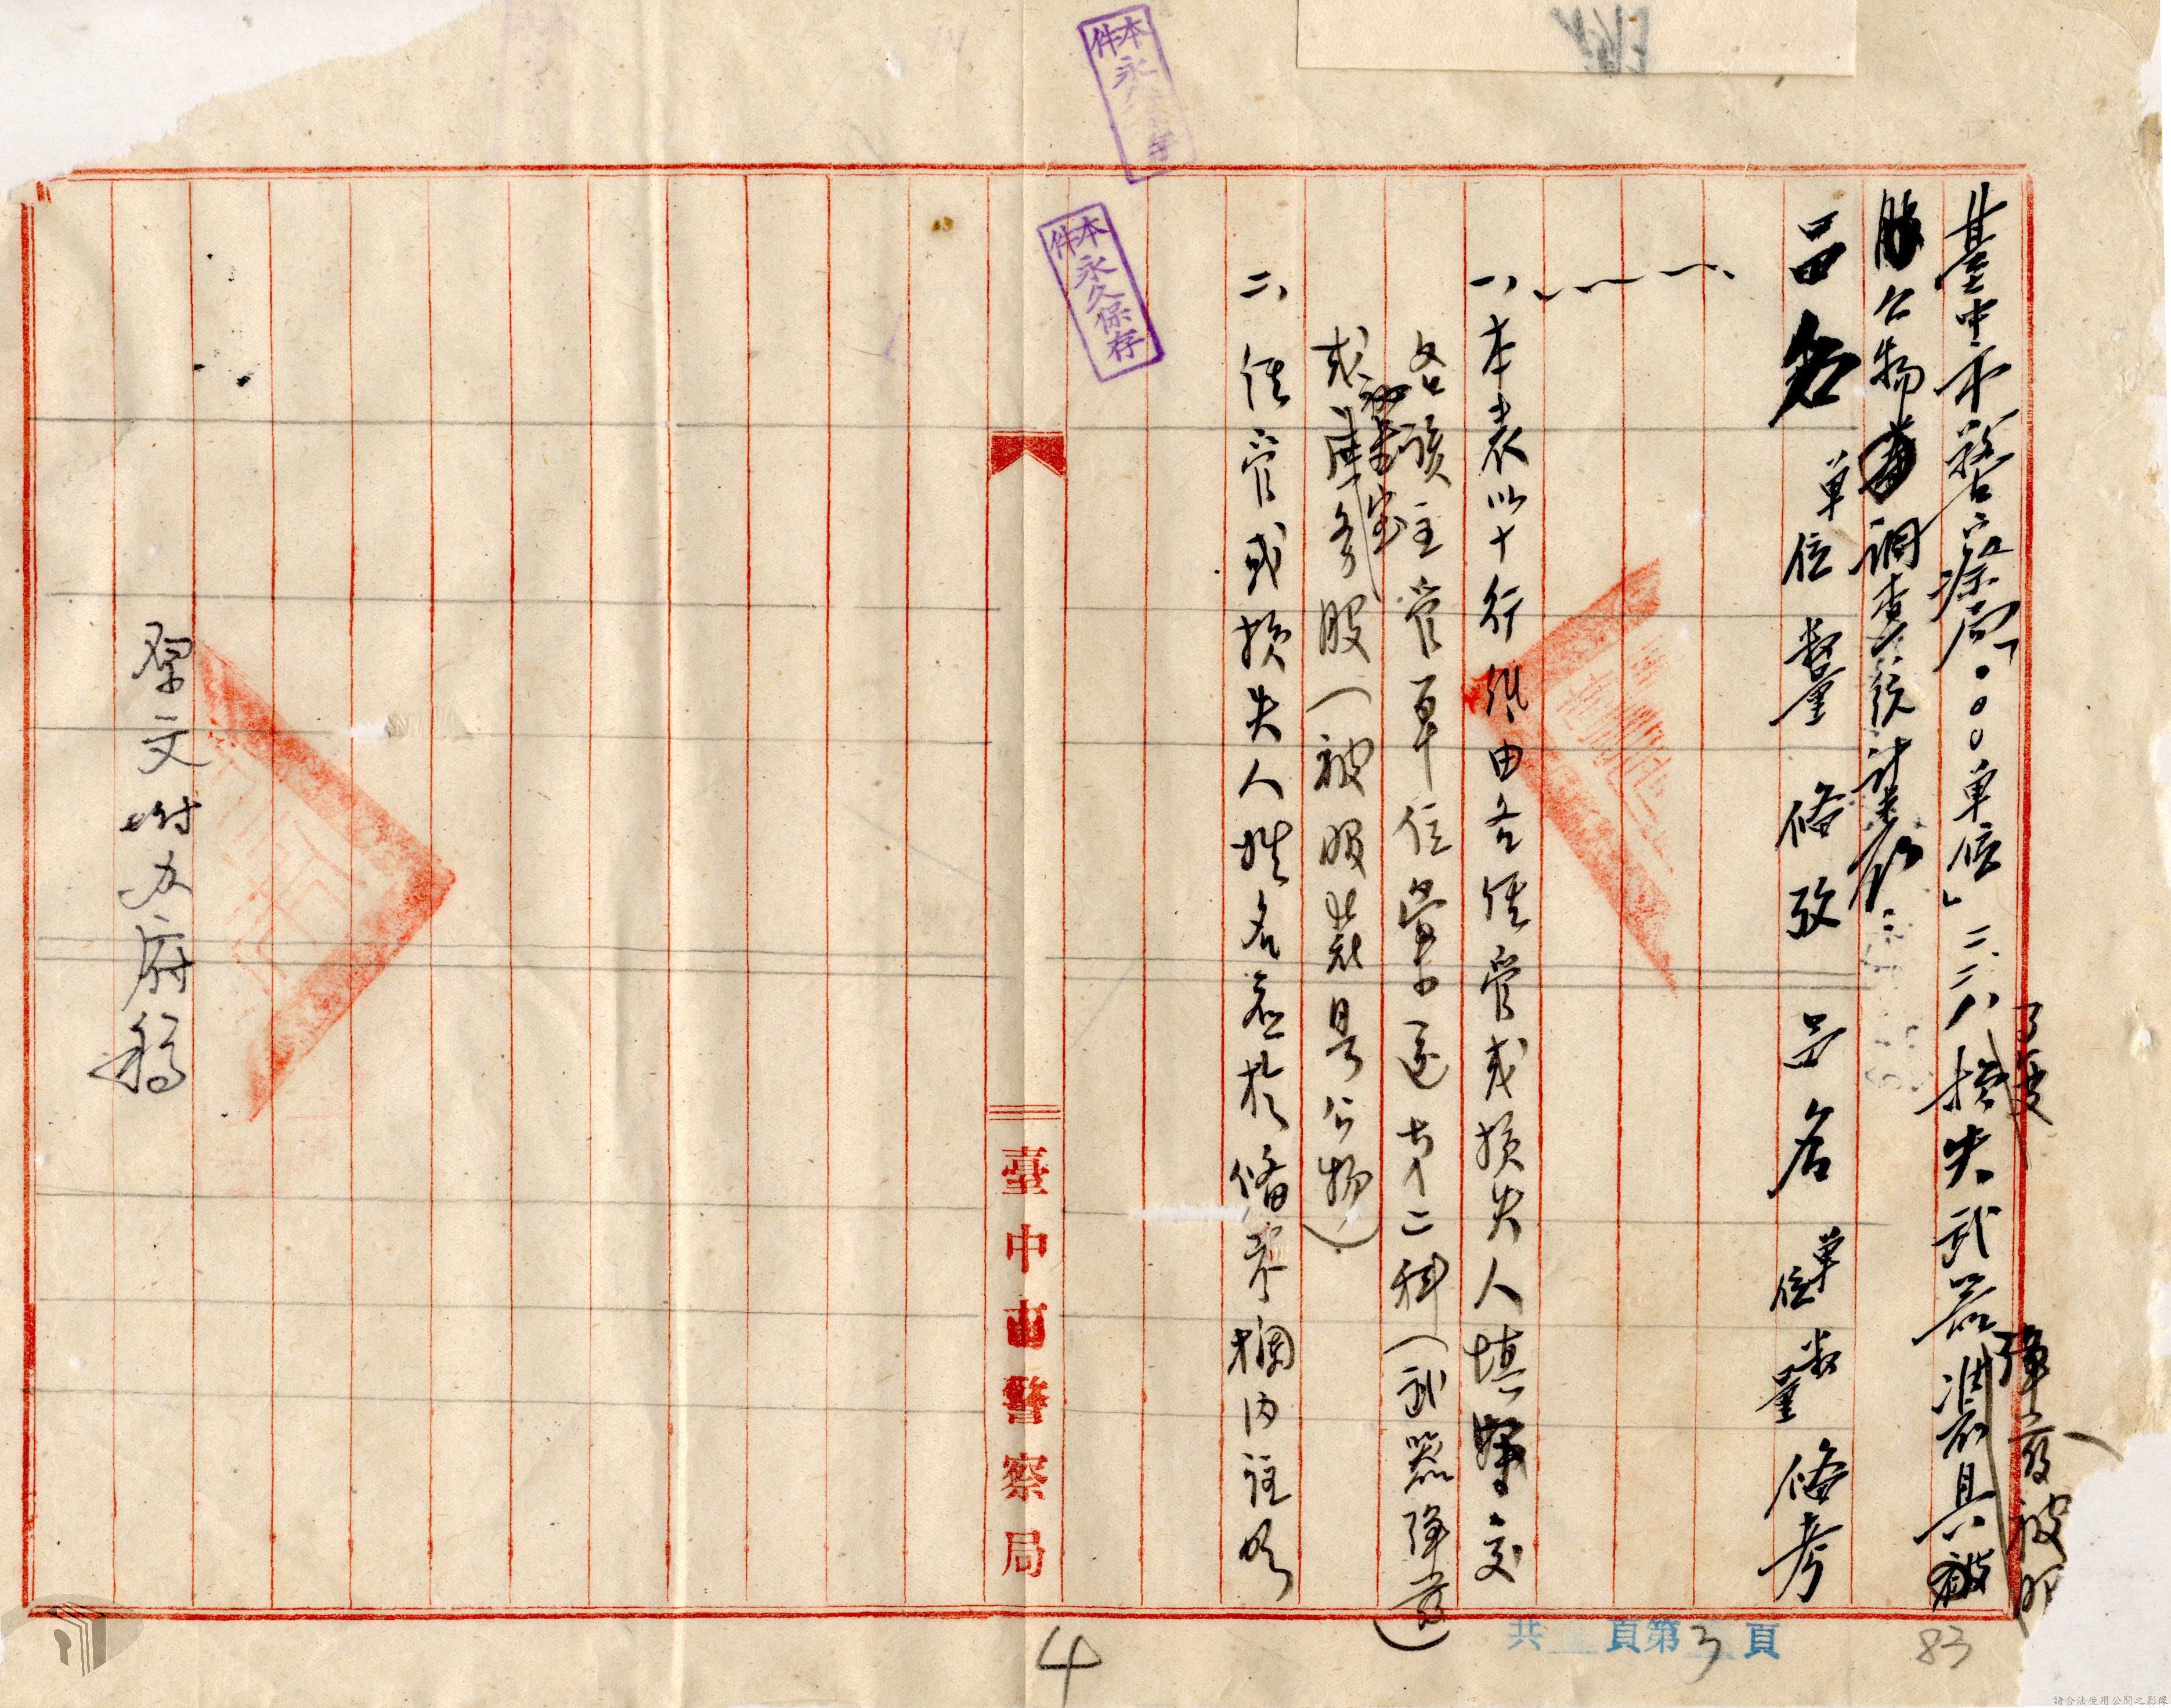 臺中市警察局「○○○單位」二、二八事變損失武器彈藥被服裝具
公物調查統計表：
品名 單位 數量 備攷 品名 單位 數量 備考
一、本表以十行紙由各經管或損失人填單交
各該主管單位彙出送本局二科（武器彈藥）
或秘書室（被服裝具公物）
二、經管或損失人姓名應於備攷欄內註明
臺中市警察局
本件永久保存
本件永
共 頁第3頁
83
4
請合法使用公開之影像